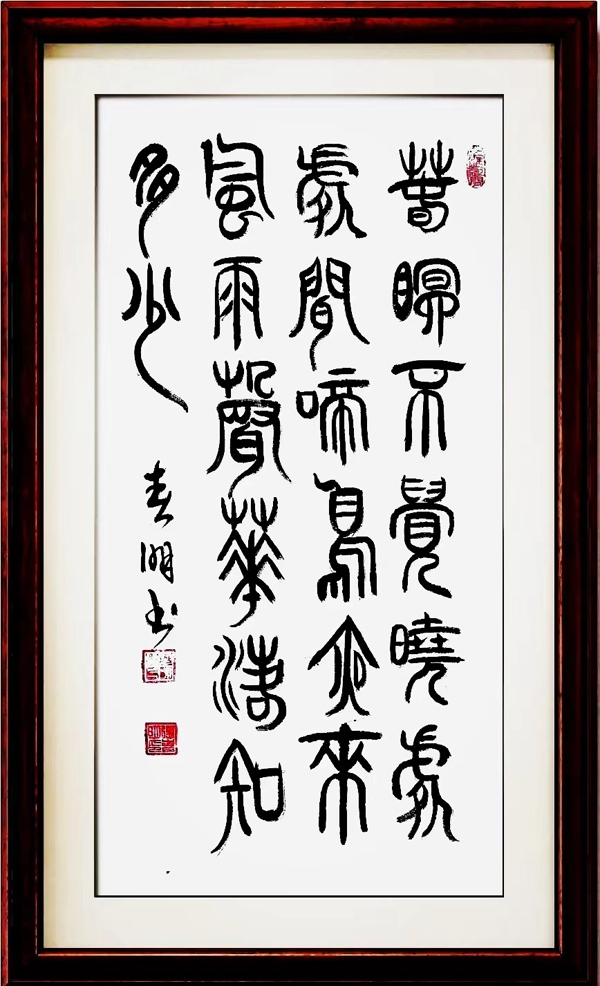 春眠不覺曉處
處聞啼鳥夜來
風雨聲華落知
多少
春明书